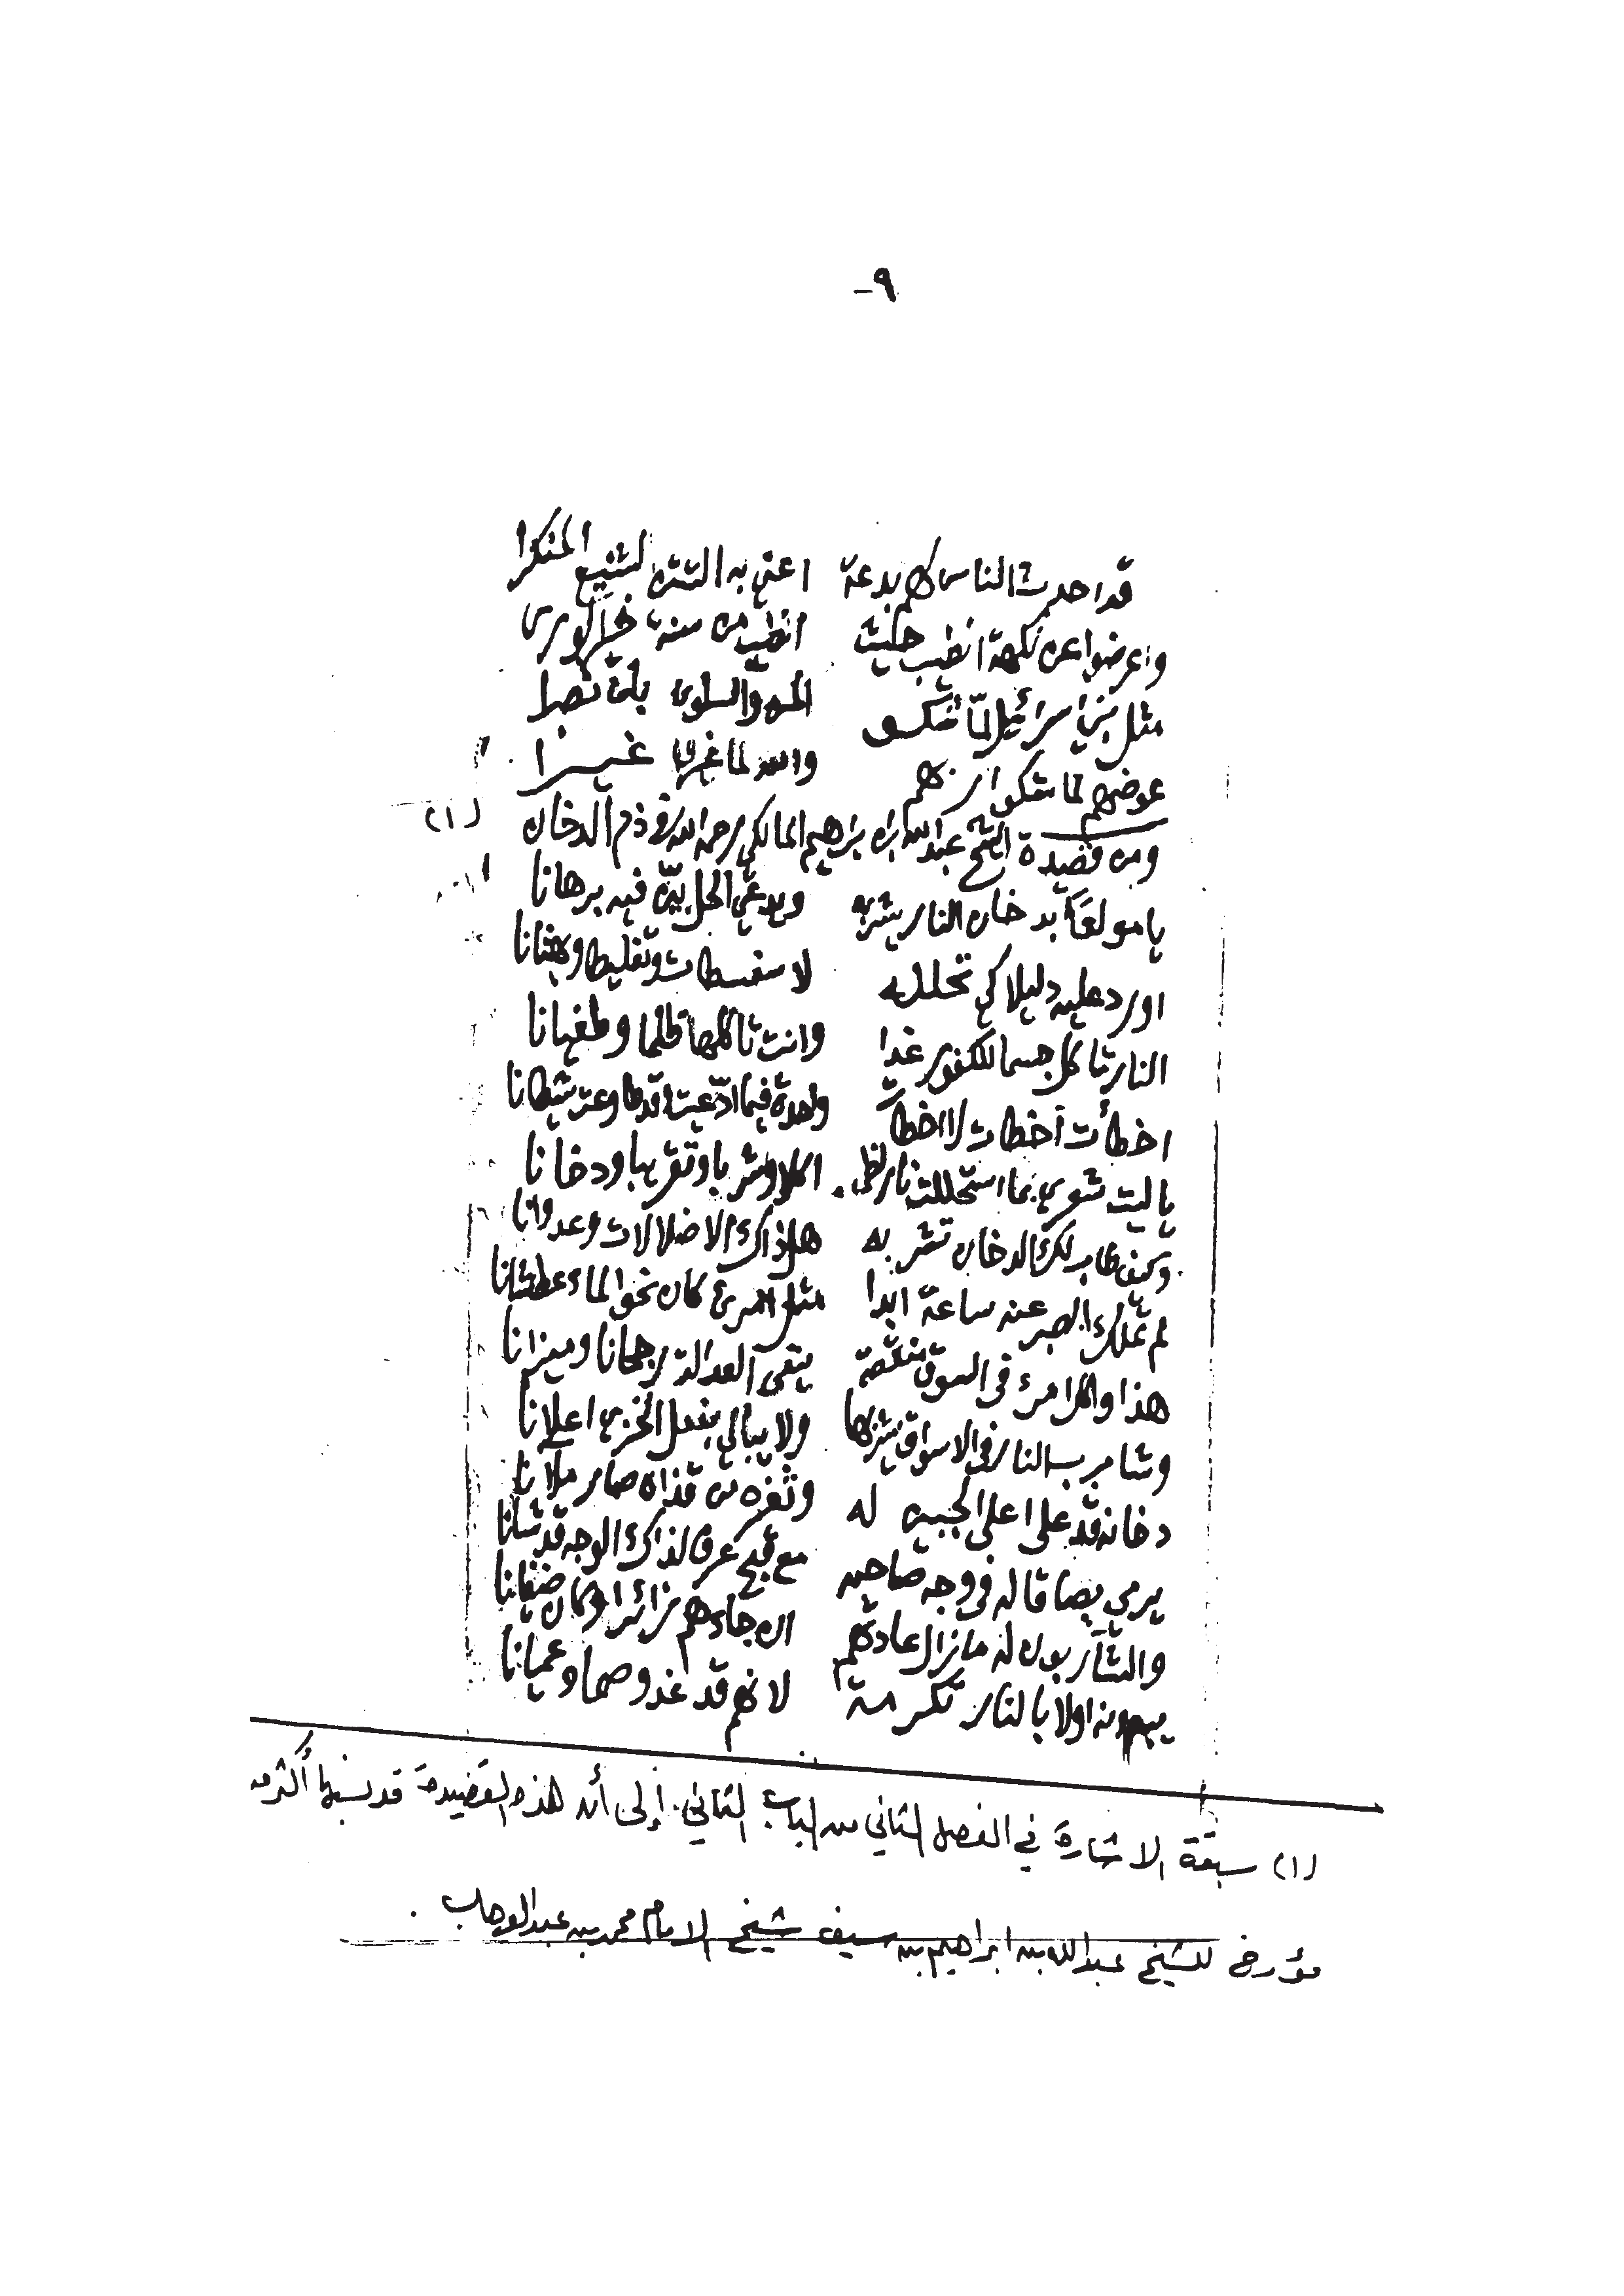 ٩-
قد احدث الناس لهم بدعة اعني به التتن الشنيع المنكرا
واعرضوا عن نكهة اطيب من سنة خير الورى
مثل بني اسرائيل لمّا شكو المن والسلوى بان تصبرا
عوضهم لما شكوا ربهم والله لما غيرنا غيرا
ومن قصيدة الشيخ عبد الله ابن ابراهيم المالكي رحمه الله في ذم الدخان (١)
يا مولعًا بدخان النار يشربه ويدعي الحل بيّن فيه برهانا
اورد عليه دليلا كي تحلله لا سفسطات وتغليطا وبهتانا
النار تأكل جسما للكفور غدا وانت تأكلها ظلما وطغيانا
اخطأت اخطات لا اخطات واحدة فيما ادّعيت قدما وعز شيطانا
يا ليت شعري بما استحللت نار لظى اكلا وشربا وتقريبا ودخانا
وكيف طاب لك الدخان تشربه هل ذاك الا ضلالات وعدوانا
لم تملك الصبر عنه ساعة ابدا مثل امرئ كان نحو الماء عطشانا
هذا واكل امرء في السوق منقصة ينفي العدالة رجحانا وميزانا
وشارب النار في الاسواق يشربها ولا يبالي بفعل الخزي اعلانا
دخانه قد على اعلى الجبين له وثغره من قذاه صار ملآنا
يرمي بصاقا له في وجه صاحبه مع قبح عرف لذاك الوجه قد شانا
والشاربون له ما زال عادتهم ان جاءهم زائرا وكان ضيفانا
يبدونه اولا بالنار تكرمة لانهم قد غدو صما وعميانا
(١) سبقة الاشارة في الفصل الثاني من الباب الثاني إلى أن هذه القصيدة قد نسبها أكثر من
مؤرخ للشيخ عبدالله بن ابراهيم بن سيف شيخ الامام محمد بن عبدالوهاب .